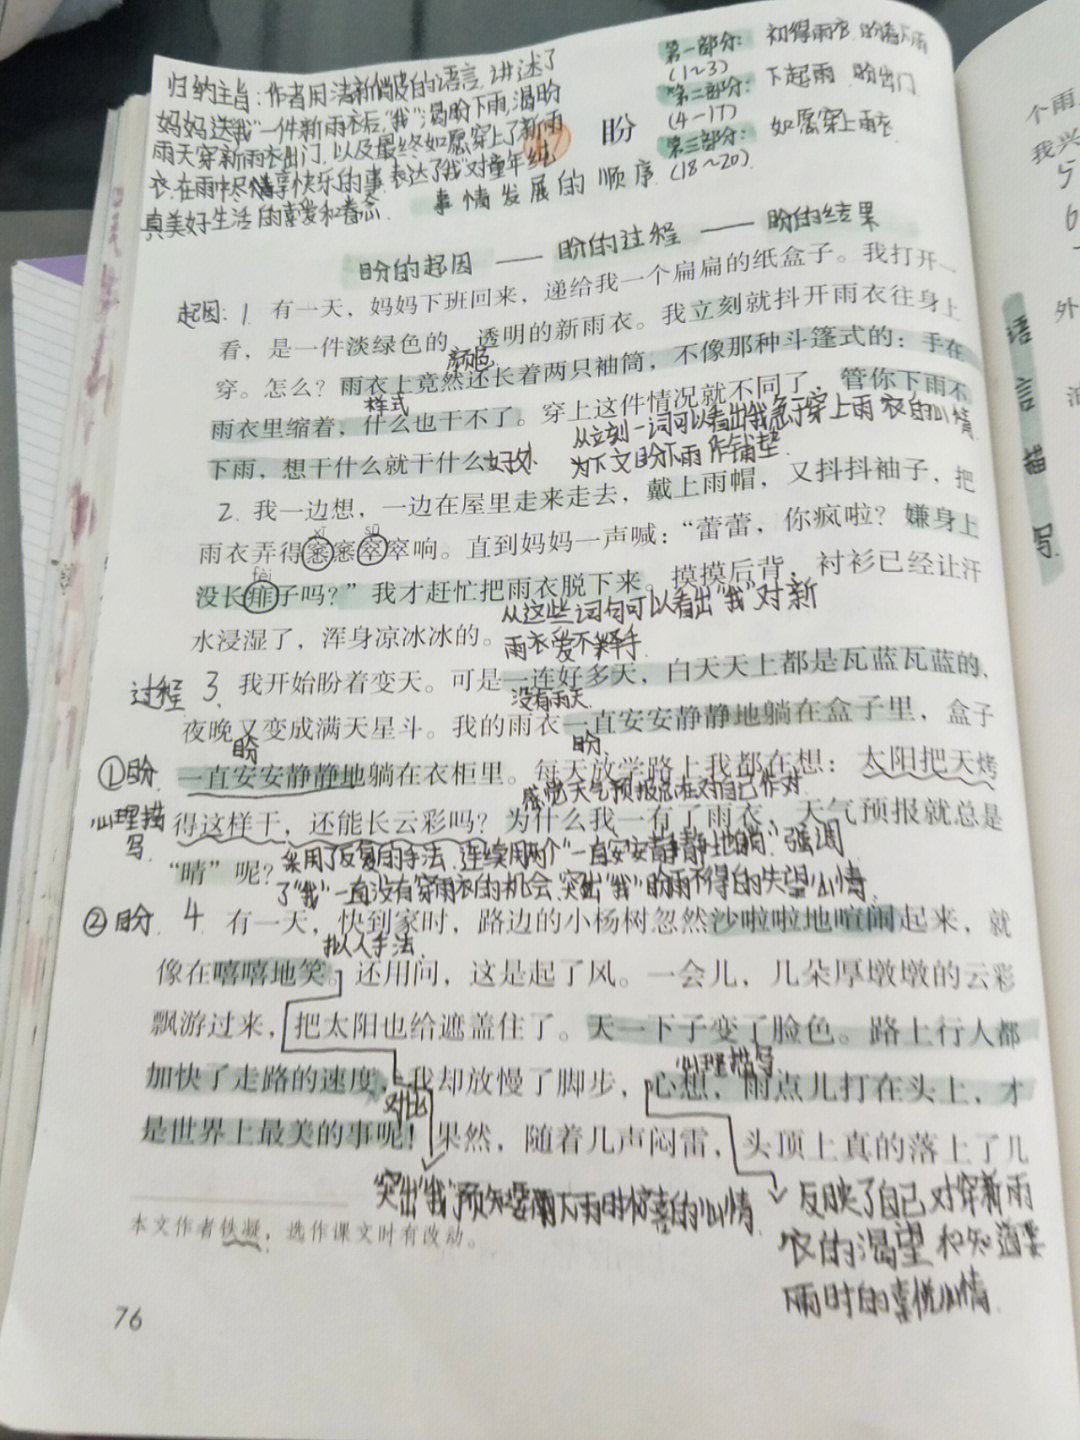 归纳主旨：作者用清新俏皮的语言，讲述了
妈妈送"我"一件新雨衣后，"我"渴盼下雨，渴盼
雨天穿新雨衣出门，以及最终如愿穿上了新雨
衣，在雨中尽情享快乐的事，表达了"我"对童年纯
真美好生活的喜爱和眷念.
第一部分： 初得雨衣
(1~3)
第二部分： 下起雨 盼出门
(4-17)
第三部分： 如愿穿上雨衣.
(18~20)
17 盼
事情发展的顺序
盼的起因 —— 盼的过程 —— 盼的结果
起因： 1. 有一天，妈妈下班回来，递给我一个扁扁的纸盒子。我打开一
看，是一件淡绿色的、透明的新雨衣。我立刻就抖开雨衣往身上
颜色
穿。怎么？雨衣上竟然还长着两只袖筒，不像那种斗篷式的：手在
样式
雨衣里缩着，什么也干不了。穿上这件情况就不同了，管你下雨不
从立刻一词可以看出我急于穿上雨衣的心情
下雨，想干什么就干什么 好处
为下文盼下雨作铺垫.
2. 我一边想，一边在屋里走来走去，戴上雨帽，又抖抖袖子，把
雨衣弄得窸窸窣窣响。直到妈妈一声喊：“蕾蕾，你疯啦？嫌身上
fèi
没长痱子吗？”我才赶忙把雨衣脱下来。摸摸后背，衬衫已经让汗
从这些词句可以看出"我"对新
水浸湿了，浑身凉冰冰的。
雨衣爱不释手.
过程 3. 我开始盼着变天。可是一连好多天，白天天上都是瓦蓝瓦蓝的，
没有雨天.
夜晚又变成满天星斗。我的雨衣一直安安静静地躺在盒子里，盒子
盼 盼.
①盼 一直安安静静地躺在衣柜里。每天放学路上我都在想：太阳把天烤
感觉天气预报总在对自己作对.
心理描写. 得这样干，还能长云彩吗？为什么我一有了雨衣，天气预报就总是
“晴”呢？ 采用了反复的手法，连续用两个"一直安安静静地躺"强调
了"我"一直没有穿雨衣的机会，突出"我"盼雨不得的失望心情.
②盼 4. 有一天，快到家时，路边的小杨树忽然沙啦啦地喧闹起来，就
拟人手法.
像在嘻嘻地笑。还用问，这是起了风。一会儿，几朵厚墩墩的云彩
飘游过来，把太阳也给遮盖住了。天一下子变了脸色。路上行人都
心理描写.
加快了走路的速度，我却放慢了脚步，心想，雨点儿打在头上，才
对比
是世界上最美的事呢！果然，随着几声闷雷，头顶上真的落上了几
突出"我"预知要下雨时惊喜的心情.
反映了自己对穿新雨
衣的渴望和知道要
雨时的喜悦心情.
本文作者铁凝，选作课文时有改动。
76
语言描写
个雨
我兴
5
6
外